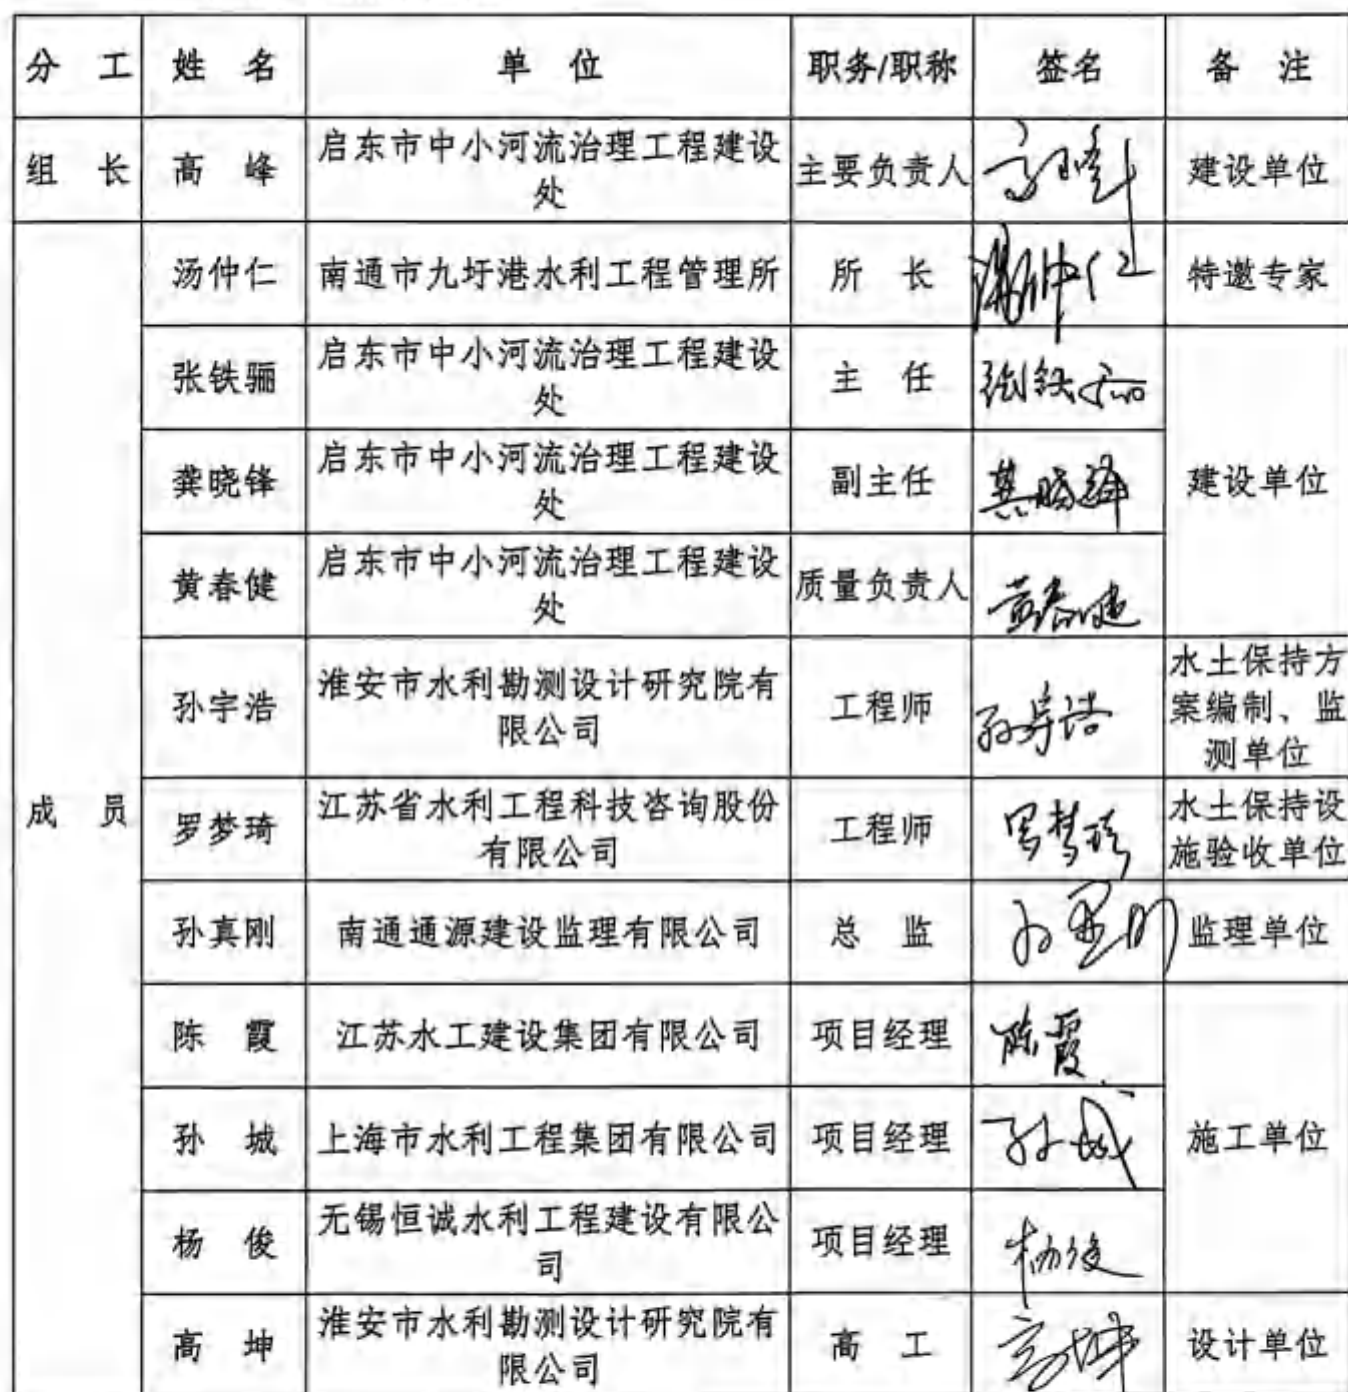 分 工 姓 名 单 位 职务/职称 签名 备 注
组 长 高 峰 启东市中小河流治理工程建设处 主要负责人 高峰 建设单位
成 员
汤仲仁 南通市九圩港水利工程管理所 所 长 汤仲仁 特邀专家
张铁骊 启东市中小河流治理工程建设处 主 任 张铁骊 建设单位
龚晓锋 启东市中小河流治理工程建设处 副主任 龚晓锋
黄春健 启东市中小河流治理工程建设处 质量负责人 黄春健
孙宇浩 淮安市水利勘测设计研究院有限公司 工程师 孙宇浩 水土保持方案编制、监测单位
罗梦琦 江苏省水利工程科技咨询股份有限公司 工程师 罗梦琦 水土保持设施验收单位
孙真刚 南通通源建设监理有限公司 总 监 孙真刚 监理单位
陈 霞 江苏水工建设集团有限公司 项目经理 陈霞 施工单位
孙 城 上海市水利工程集团有限公司 项目经理 孙城
杨 俊 无锡恒诚水利工程建设有限公司 项目经理 杨俊
高 坤 淮安市水利勘测设计研究院有限公司 高 工 高坤 设计单位